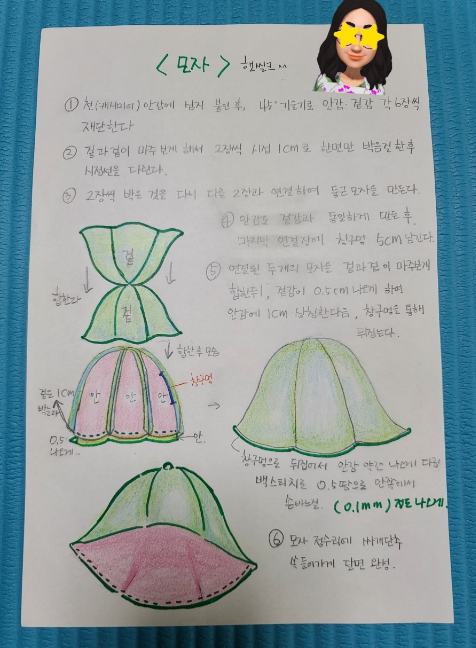 <모자> 햇빛크
① 천(캐시미어) 안감에 심지 붙인후, 45°기울기로 안감.겉감 각 6장씩
재단한다
② 겉과 겉이 마주보게 해서 2장씩 시접 1cm로 한면만 박음질한후
시접선을 다린다.
③ 2장씩 박은 것을 다시 다음 2장과 연결하여 둥근모자를 만든다.
④ 안감도 겉감과 동일하게 만든후,
마지막 연결선에 창구멍 5cm 남긴다.
⑤ 연결된 두개의 모자를 겉과겉이 마주보게
합한뒤, 겉감이 0.5cm 나오게 하여
안감에 1cm 다음, 창구멍을 통해
뒤집는다.
겉
합한다
겉
합한후 모습
창구멍
안 안 안
겉도 1cm
0.5
나오게..
안.
창구멍으로 뒤집어서 안감 약간 나오게 다림
백스티치로 0.5땀으로 안쪽에서
손바느질. (0.1mm)정도 나오게.
⑥ 모자 정수리에 싸개단추
쏙 들어가게 달면 완성.